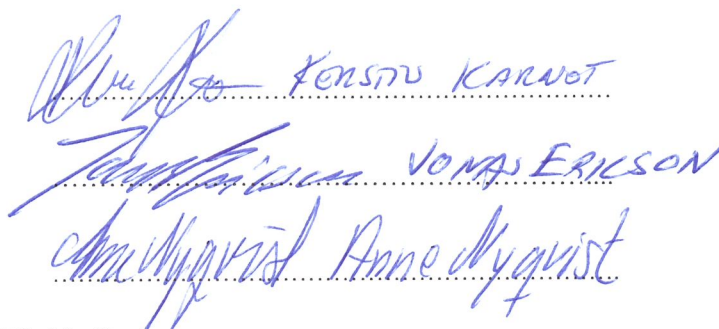 KERSTIN KARNOT
JONAS ERICSON
Anne Nyqvist Anne Nyqvist